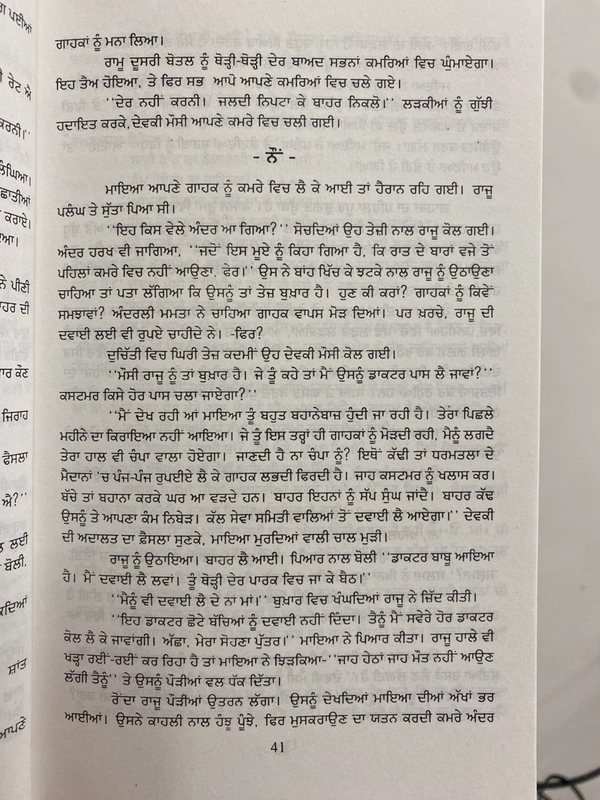 ਗ ਪਈਆਂ
ੀ ਰੇਟ ਐ
ਕਰਨੀ।"
ਲੰਘਿਆ।
ਛਾਤੀਆਂ
ਕਰਾਏ।
ਦਆ।
ਨੇ ਪੀਣੀ
ਾਹਰ ਦੀ
ਾਰ ਕੌਣ
ਜਿਰਾਹ
ਫੈਸਲਾ
ਐ?''
ਲਈ
ਬੋਲੀ,
ਕਦਿਆਂ
ਸ਼ਾਂਤ
ਆਪਣੇ
ਗਾਹਕਾਂ ਨੂੰ ਮਨਾ ਲਿਆ।
ਰਾਮੂ ਦੂਸਰੀ ਬੋਤਲ ਨੂੰ ਥੋੜ੍ਹੀ-ਥੋੜ੍ਹੀ ਦੇਰ ਬਾਅਦ ਸਭਨਾਂ ਕਮਰਿਆਂ ਵਿਚ ਘੁੰਮਾਏਗਾ।
ਇਹ ਤੈਅ ਹੋਇਆ, ਤੇ ਫਿਰ ਸਭ ਆਪੋ ਆਪਣੇ ਕਮਰਿਆਂ ਵਿਚ ਚਲੇ ਗਏ।
''ਦੇਰ ਨਹੀਂ ਕਰਨੀ। ਜਲਦੀ ਨਿਪਟਾ ਕੇ ਬਾਹਰ ਨਿਕਲੋ।'' ਲੜਕੀਆਂ ਨੂੰ ਗੁੱਝੀ
ਹਦਾਇਤ ਕਰਕੇ,ਦੇਵਕੀ ਮੌਸੀ ਆਪਣੇ ਕਮਰੇ ਵਿਚ ਚਲੀ ਗਈ।
- ਨੌਂ -
ਮਾਇਆ ਆਪਣੇ ਗਾਹਕ ਨੂੰ ਕਮਰੇ ਵਿਚ ਲੈ ਕੇ ਆਈ ਤਾਂ ਹੈਰਾਨ ਰਹਿ ਗਈ। ਰਾਜੂ
ਪਲੰਘ ਤੇ ਸੁੱਤਾ ਪਿਆ ਸੀ।
''ਇਹ ਕਿਸ ਵੇਲੇ ਅੰਦਰ ਆ ਗਿਆ?'' ਸੋਚਦਿਆਂ ਉਹ ਤੇਜ਼ੀ ਨਾਲ ਰਾਜੂ ਕੋਲ ਗਈ।
ਅੰਦਰ ਹਰਖ ਵੀ ਜਾਗਿਆ, ''ਜਦੋਂ ਇਸ ਮੂਏ ਨੂੰ ਕਿਹਾ ਗਿਆ ਹੈ, ਕਿ ਰਾਤ ਦੇ ਬਾਰਾਂ ਵਜੇ ਤੋਂ
ਪਹਿਲਾਂ ਕਮਰੇ ਵਿਚ ਨਹੀਂ ਆਉਣਾ, ਫੇਰ।'' ਉਸ ਨੇ ਬਾਂਹ ਖਿੱਚ ਕੇ ਝਟਕੇ ਨਾਲ ਰਾਜੂ ਨੂੰ ਉਠਾਉਣਾ
ਚਾਹਿਆ ਤਾਂ ਪਤਾ ਲੱਗਿਆ ਕਿ ਉਸਨੂੰ ਤਾਂ ਤੇਜ਼ ਬੁਖ਼ਾਰ ਹੈ। ਹੁਣ ਕੀ ਕਰਾਂ? ਗਾਹਕਾਂ ਨੂੰ ਕਿਵੇਂ
ਸਮਝਾਵਾਂ? ਅੰਦਰਲੀ ਮਮਤਾ ਨੇ ਚਾਹਿਆ ਗਾਹਕ ਵਾਪਸ ਮੋੜ ਦਿਆਂ। ਪਰ ਖ਼ਰਚੇ, ਰਾਜੂ ਦੀ
ਦਵਾਈ ਲਈ ਵੀ ਰੁਪਏ ਚਾਹੀਦੇ ਨੇ। -ਫਿਰ?
ਦੁਚਿੱਤੀ ਵਿਚ ਘਿਰੀ ਤੇਜ਼ ਕਦਮੀਂ ਉਹ ਦੇਵਕੀ ਮੌਸੀ ਕੋਲ ਗਈ।
''ਮੌਸੀ ਰਾਜੂ ਨੂੰ ਤਾਂ ਬੁਖ਼ਾਰ ਹੈ। ਜੇ ਤੂੰ ਕਹੇ ਤਾਂ ਮੈਂ ਉਸਨੂੰ ਡਾਕਟਰ ਪਾਸ ਲੈ ਜਾਵਾਂ?''
ਕਸਟਮਰ ਕਿਸੇ ਹੋਰ ਪਾਸ ਚਲਾ ਜਾਏਗਾ?''
''ਮੈਂ ਦੇਖ ਰਹੀ ਆਂ ਮਾਇਆ ਤੂੰ ਬਹੁਤ ਬਹਾਨੇਬਾਜ਼ ਹੁੰਦੀ ਜਾ ਰਹੀ ਹੈ। ਤੇਰਾ ਪਿਛਲੇ
ਮਹੀਨੇ ਦਾ ਕਿਰਾਇਆ ਨਹੀਂ ਆਇਆ। ਜੇ ਤੂੰ ਇਸ ਤਰ੍ਹਾਂ ਹੀ ਗਾਹਕਾਂ ਨੂੰ ਮੋੜਦੀ ਰਹੀ, ਮੈਨੂੰ ਲਗਦੈ
ਤੇਰਾ ਹਾਲ ਵੀ ਚੰਪਾ ਵਾਲਾ ਹੋਏਗਾ। ਜਾਣਦੀ ਹੈ ਨਾ ਚੰਪਾ ਨੂੰ? ਇਥੋਂ ਕੱਢੀ ਤਾਂ ਧਰਮਤਲਾ ਦੇ
ਮੈਦਾਨਾਂ 'ਚ ਪੰਜ-ਪੰਜ ਰੁਪਈਏ ਲੈ ਕੇ ਗਾਹਕ ਲਭਦੀ ਫਿਰਦੀ ਹੈ। ਜਾਹ ਕਸਟਮਰ ਨੂੰ ਖਲਾਸ ਕਰ।
ਬੱਚੇ ਤਾਂ ਬਹਾਨਾ ਕਰਕੇ ਘਰ ਆ ਵੜਦੇ ਹਨ। ਬਾਹਰ ਇਹਨਾਂ ਨੂੰ ਸੱਪ ਸੁੰਘ ਜਾਂਦੈ। ਬਾਹਰ ਕੱਢ
ਉਸਨੂੰ ਤੇ ਆਪਣਾ ਕੰਮ ਨਿਬੇੜ। ਕੱਲ ਸੇਵਾ ਸਮਿਤੀ ਵਾਲਿਆਂ ਤੋਂ ਦਵਾਈ ਲੈ ਆਏਗਾ।'' ਦੇਵਕੀ
ਦੀ ਅਦਾਲਤ ਦਾ ਫ਼ੈਸਲਾ ਸੁਣਕੇ, ਮਾਇਆ ਮੁਰਦਿਆਂ ਵਾਲੀ ਚਾਲ ਮੁੜੀ।
ਰਾਜੂ ਨੂੰ ਉਠਾਇਆ। ਬਾਹਰ ਲੈ ਆਈ। ਪਿਆਰ ਨਾਲ ਬੋਲੀ ''ਡਾਕਟਰ ਬਾਬੂ ਆਇਆ
ਹੈ। ਮੈਂ ਦਵਾਈ ਲੈ ਲਵਾਂ। ਤੂੰ ਥੋੜ੍ਹੀ ਦੇਰ ਪਾਰਕ ਵਿਚ ਜਾ ਕੇ ਬੈਠ।''
''ਮੈਨੂੰ ਵੀ ਦਵਾਈ ਲੈ ਦੇ ਨਾਂ ਮਾਂ।'' ਬੁਖ਼ਾਰ ਵਿਚ ਖੰਘਦਿਆਂ ਰਾਜੂ ਨੇ ਜ਼ਿੱਦ ਕੀਤੀ।
''ਇਹ ਡਾਕਟਰ ਛੋਟੇ ਬੱਚਿਆਂ ਨੂੰ ਦਵਾਈ ਨਹੀਂ ਦਿੰਦਾ। ਤੈਨੂੰ ਮੈਂ ਸਵੇਰੇ ਹੋਰ ਡਾਕਟਰ
ਕੋਲ ਲੈ ਕੇ ਜਾਵਾਂਗੀ। ਅੱਛਾ, ਮੇਰਾ ਸੋਹਣਾ ਪੁੱਤਰ।'' ਮਾਇਆ ਨੇ ਪਿਆਰ ਕੀਤਾ। ਰਾਜੂ ਹਾਲੇ ਵੀ
ਖੜ੍ਹਾ ਰਈਂ-ਰਈਂ ਕਰ ਰਿਹਾ ਹੈ ਤਾਂ ਮਾਇਆ ਨੇ ਝਿੜਕਿਆ-''ਜਾਹ ਹੇਠਾਂ ਜਾਹ ਮੌਤ ਨਹੀਂ ਆਉਣ
ਲੱਗੀ ਤੈਨੂੰ'' ਤੇ ਉਸਨੂੰ ਪੌੜੀਆਂ ਵਲ ਧੱਕ ਦਿੱਤਾ।
ਰੋਂਦਾ ਰਾਜੂ ਪੌੜੀਆਂ ਉਤਰਨ ਲੱਗਾ। ਉਸਨੂੰ ਦੇਖਦਿਆਂ ਮਾਇਆ ਦੀਆਂ ਅੱਖਾਂ ਭਰ
ਆਈਆਂ। ਉਸਨੇ ਕਾਹਲੀ ਨਾਲ ਹੰਝੂ ਪੂੰਝੇ, ਫਿਰ ਮੁਸਕਰਾਉਣ ਦਾ ਯਤਨ ਕਰਦੀ ਕਮਰੇ ਅੰਦਰ
41